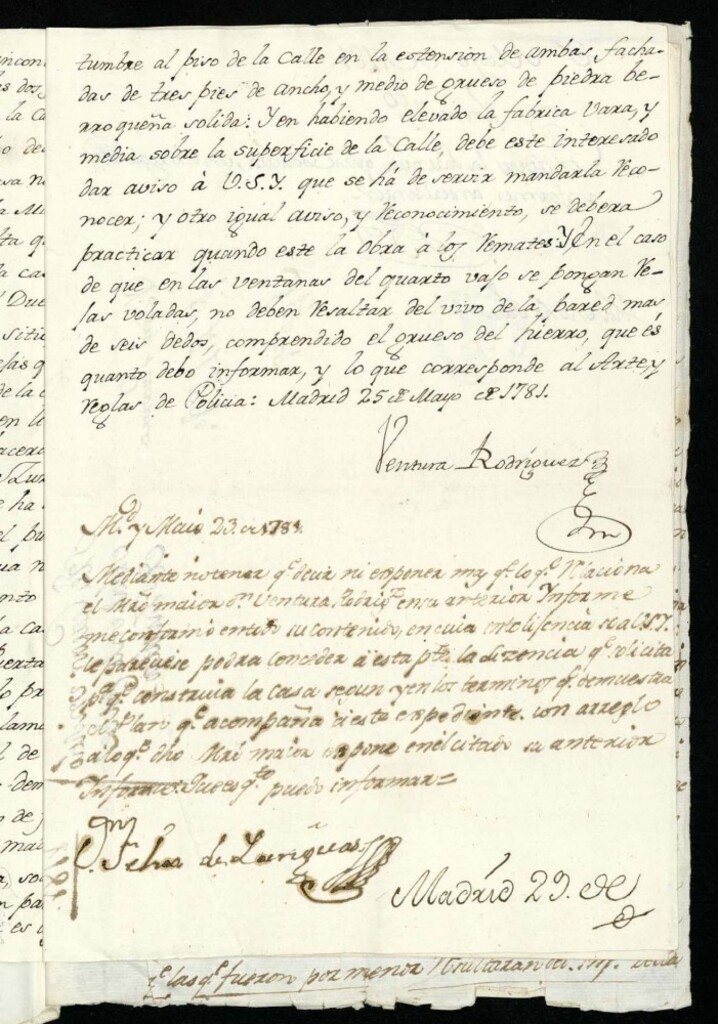 tumbre al piso de la Calle en la estension de ambas facha-
das de tres pies de ancho, y medio de grueso de piedra be-
rroqueña solida: Y en habiendo elevado la fabrica vara, y
media sobre la superficie de la Calle, debe este interesado
dar aviso à V.S.Y. que se há de servir mandarla reco-
nocer; y otro igual aviso, y reconocimiento, se deberà
practicar quando este la Obra à los remates: Y en el caso
de que en las ventanas del quarto vajo se pongan re-
jas voladas, no deben resaltar del vivo de la pared mas
de seis dedos, comprendido el grueso del hierro, que és
quanto debo informar, y lo que corresponde al Arte, y
reglas de Policia: Madrid 25 de Mayo de 1781.
Ventura Rodriguez
M.d y Maio 23. de 1781.
Mediante no tener q.e decir ni exponer mas q.e lo q.e relaciona
el Mro maior d.n Ventura Rodrig.z en su anterior Informe
me conformo en todo su contenido, en cuia intelijencia si a V.S.Y.
le pareciese podra conceder a esta p.te la lizencia q.e solicita
p.a q.e construia la casa segun y en los terminos q.e demuestra
el Plan q.e acompaña a este expediente con arreglo
a lo q.e dho Mro maior expone en el citado su anterior
Informe: que es q.to puedo informar=
de
Madrid 29. de
las q.e fueron por menor